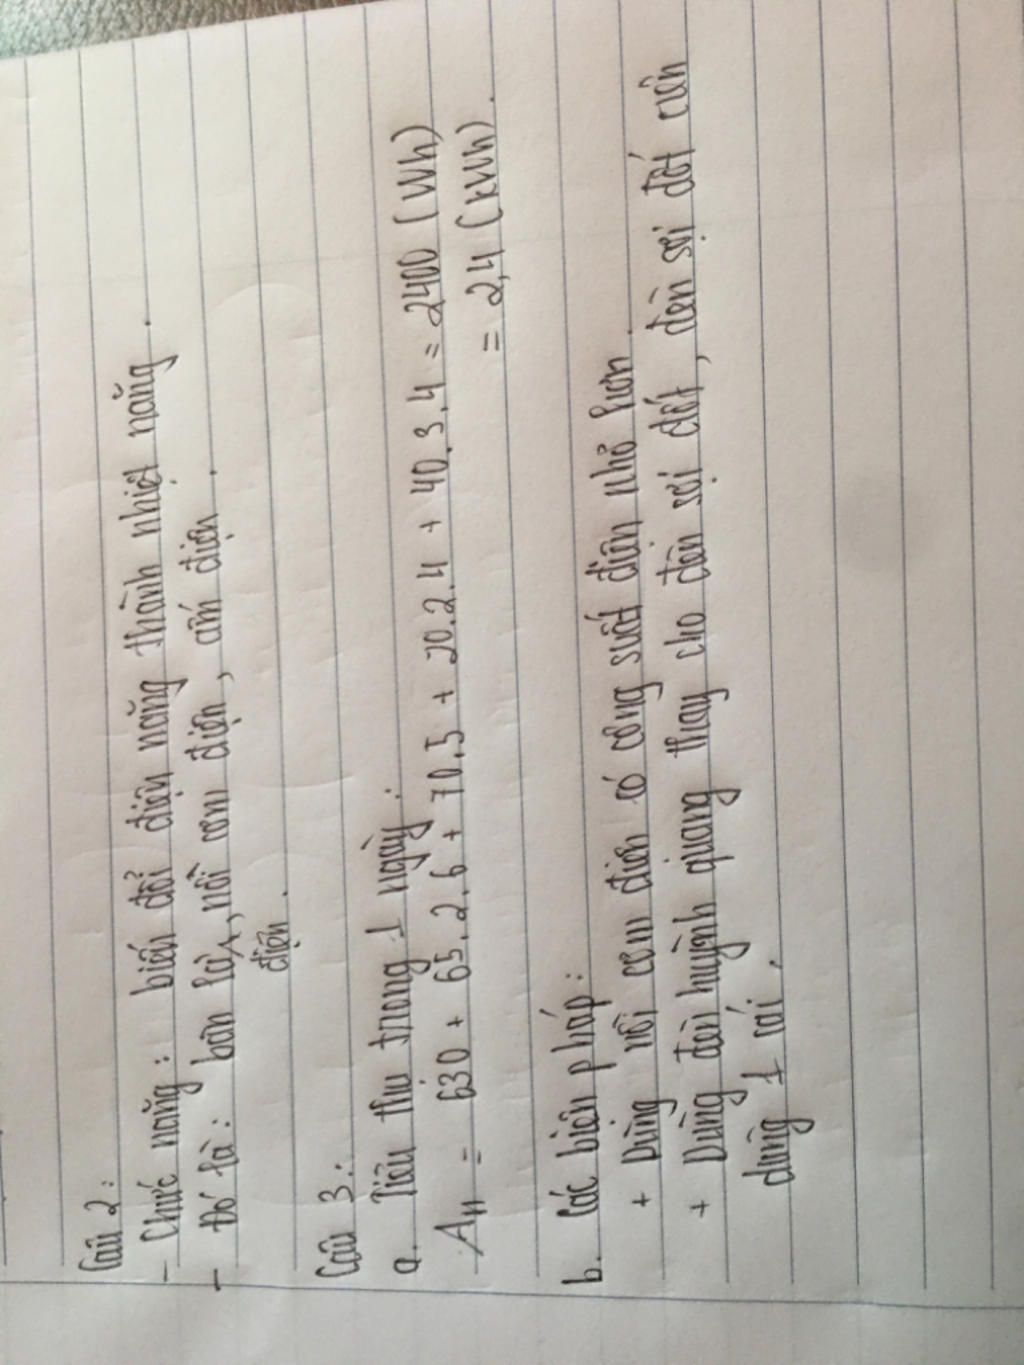 Câu 2:
- Chức năng: biến đổi điện năng thành nhiệt năng.
- Đó là: bàn là, nồi cơm điện, ấm điện.
điện.
Câu 3:
a. Tiêu thu trong 1 ngày:
A₁₁ = 630 + 65.2.6 + 70.5 + 20.2.4 + 40.3.4 = 2400 (Wh)
= 2,4 (kWh).
b. Các biện pháp:
+ Dùng nồi cơm điện có công suất điện nhỏ hơn.
+ Dùng đèn huỳnh quang thay cho đèn sợi đốt, đèn sợi đốt cần
dùng 1 cái.